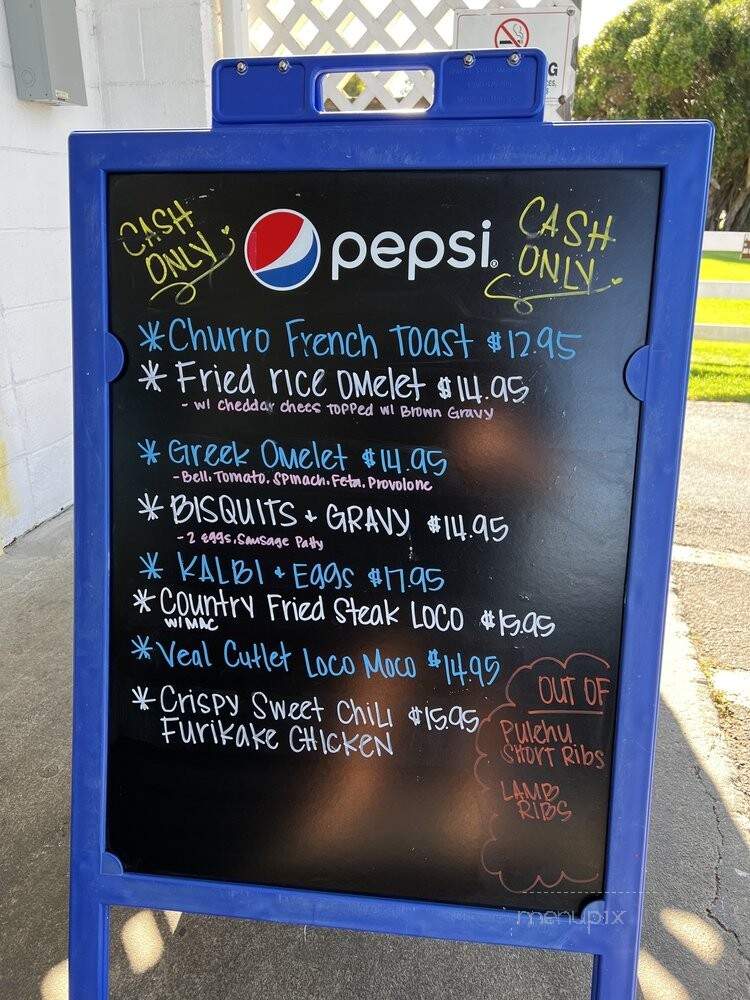 G
CASH
ONLY
pepsi
CASH
ONLY
* Churro French Toast $12.95
* Fried rice OMelet $14.95
- w/ cheddar chees TOPPED w/ Brown Gravy
* Greek Omelet $14.95
- Bell, Tomato, Spinach, Feta, Provolone
* BISQUITS + GRAVY $14.95
- 2 eggs, Sausage Patty
* KALBI + Eggs $17.95
* Country Fried Steak LOCO $15.95
w/ MAC
* Veal Cutlet Loco Moco $14.95
* Crispy Sweet Chili $15.95
Furikake CHICKEN
OUT OF
Pulehu
SHORT Ribs
LAMB
RIBS
menupix